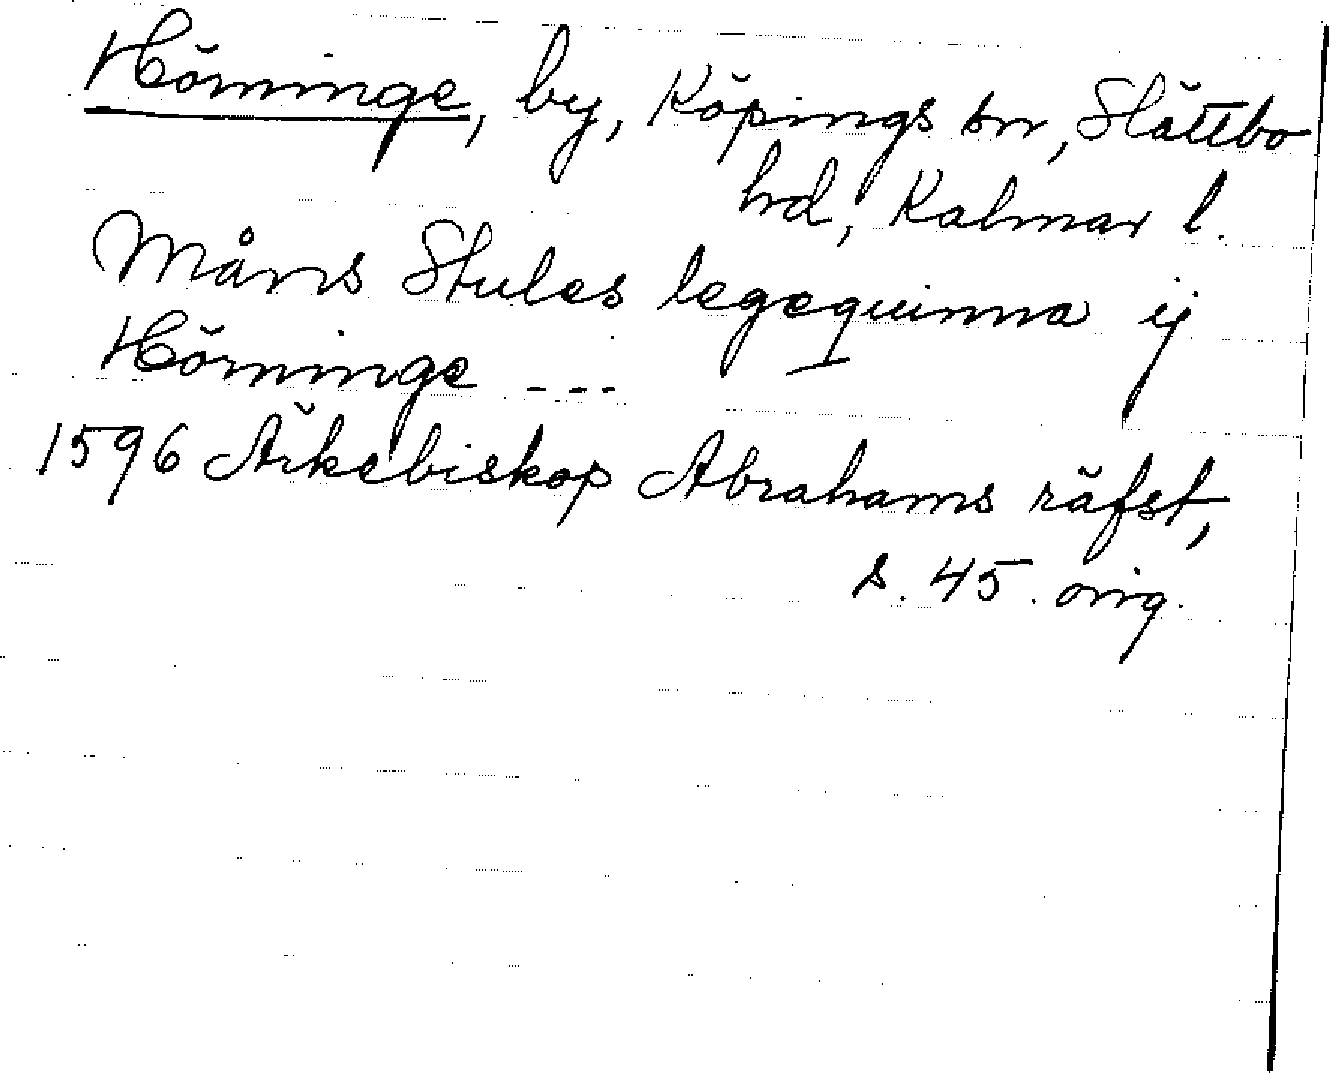 Hörninge, by, Köpings sn, Slättbo
hd, Kalmar l.
Måns Stules legequinna ij
Hörninge ---
1596 Ärkebiskop Abrahams räfst,
s. 45. orig.